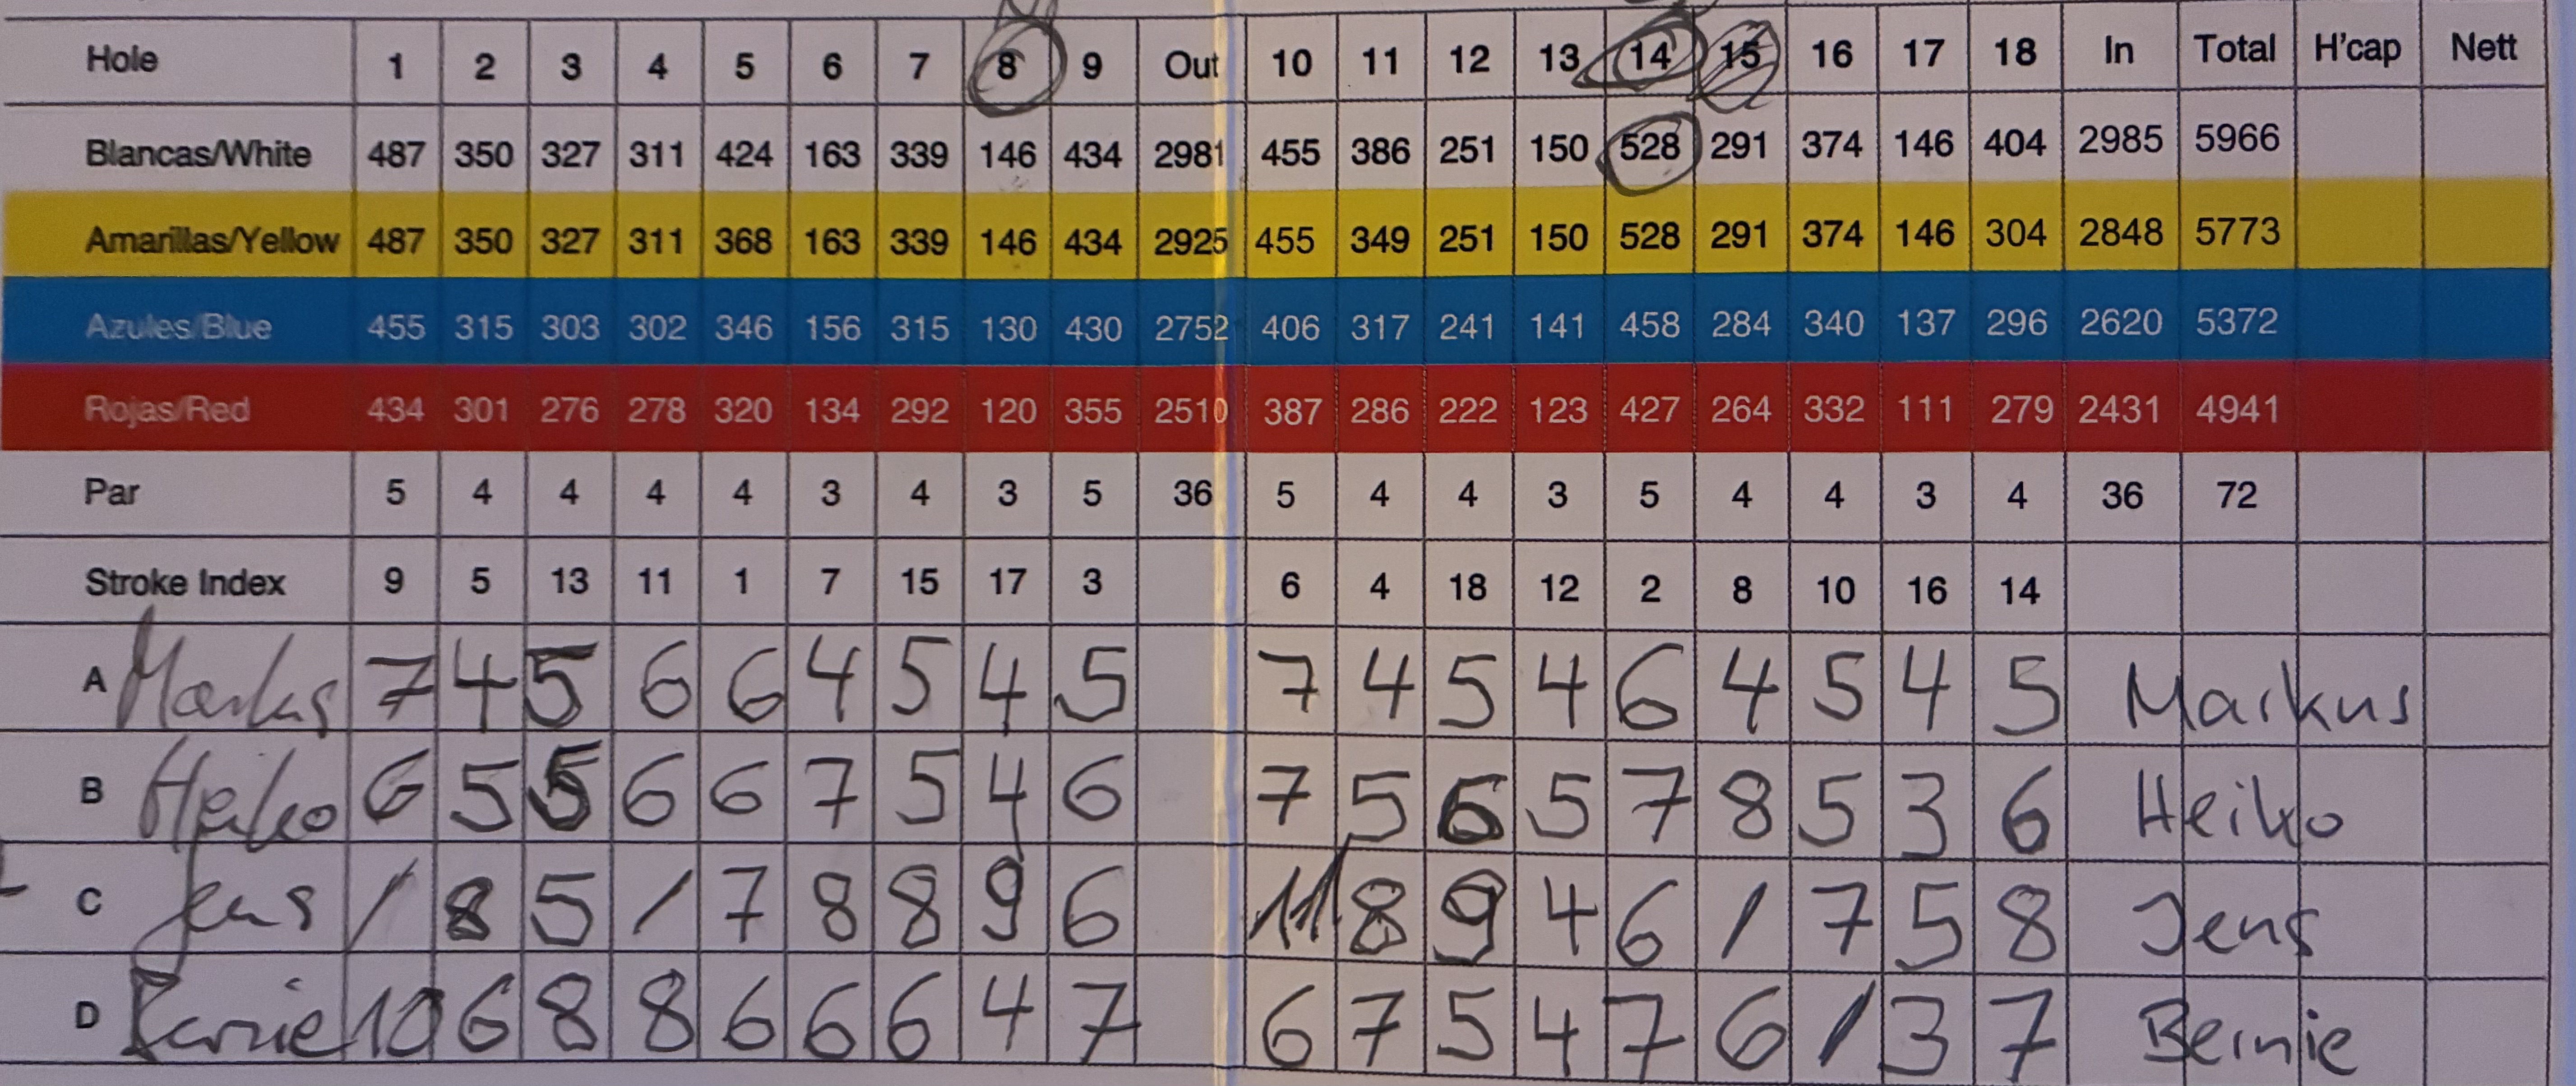 Hole 1 2 3 4 5 6 7 8 9 Out 10 11 12 13 14 15 16 17 18 In Total H'cap Nett
Blancas/White 487 350 327 311 424 163 339 146 434 2981 455 386 251 150 528 291 374 146 404 2985 5966
Amarillas/Yellow 487 350 327 311 368 163 339 146 434 2925 455 349 251 150 528 291 374 146 304 2848 5773
Azules/Blue 455 315 303 302 346 156 315 130 430 2752 406 317 241 141 458 284 340 137 296 2620 5372
Rojas/Red 434 301 276 278 320 134 292 120 355 2510 387 286 222 123 427 264 332 111 279 2431 4941
Par 5 4 4 4 4 3 4 3 5 36 5 4 4 3 5 4 4 3 4 36 72
Stroke Index 9 5 13 11 1 7 15 17 3 6 4 18 12 2 8 10 16 14
A Markus 7 4 5 6 6 4 5 4 5 7 4 5 4 6 4 5 4 5 Markus
B Heiko 6 5 5 6 6 7 5 4 6 7 5 6 5 7 8 5 3 6 Heiko
C Jens / 8 5 / 7 8 8 9 6 11 8 9 4 6 / 7 5 8 Jens
D Bernie 10 6 8 8 6 6 6 4 7 6 7 5 4 7 6 / 3 7 Bernie